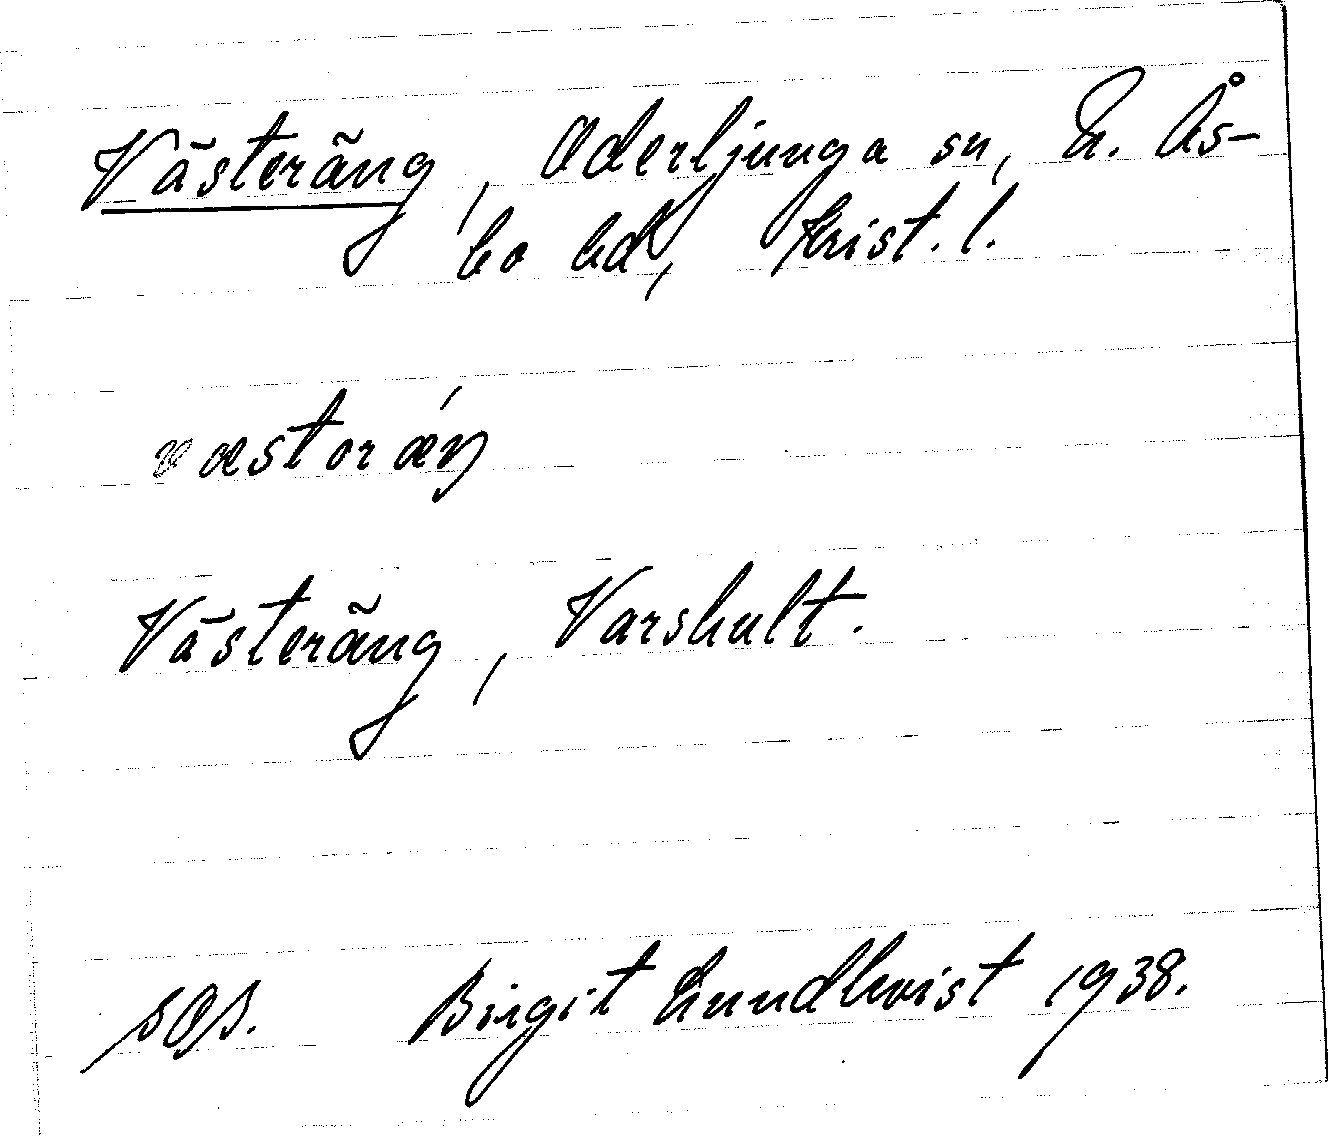 Västeräng, Oderljunga sn, N. Ås-
bo hd, Krist. l.
væstərǽŋ
Västeräng, Varshult.
SOS. Birgit Lundkvist 1938.